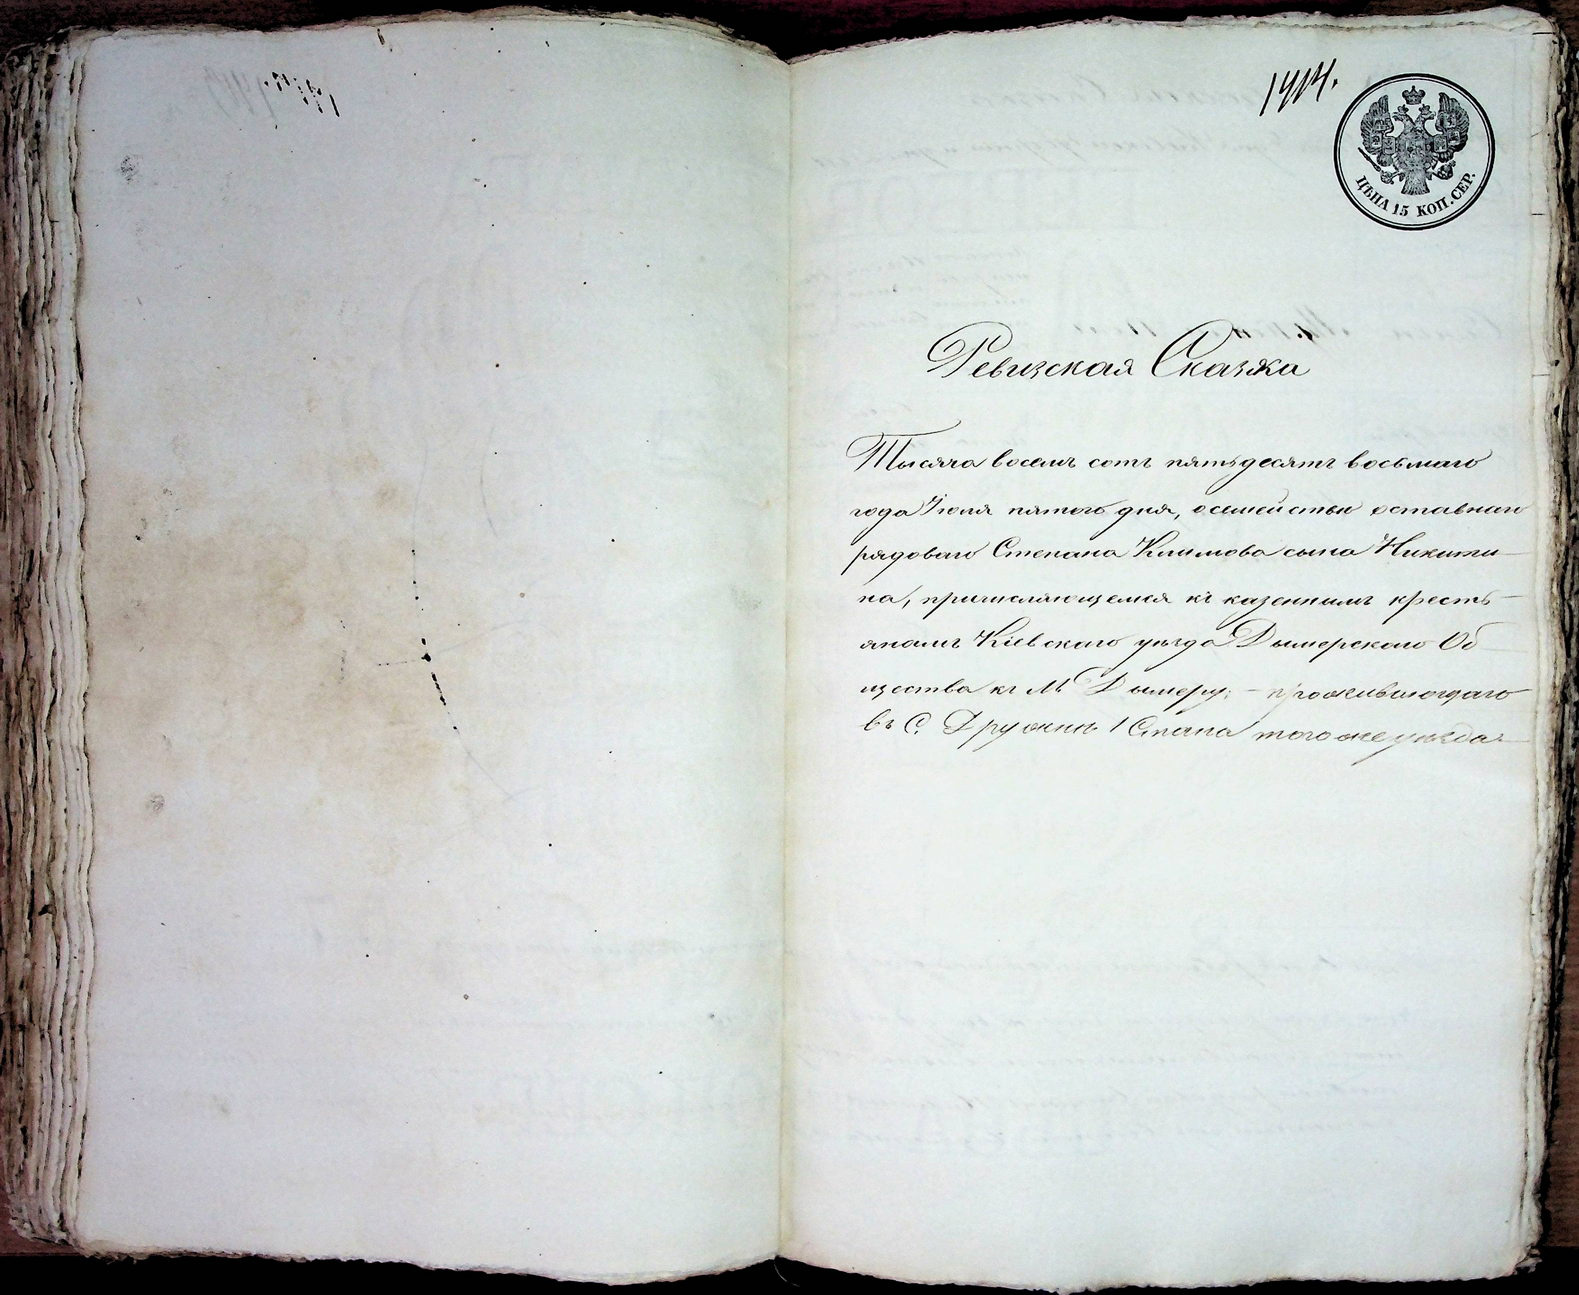 1414.
ЦѢНА 15 КОП. СЕР.
Ревизская Сказка
Тысяча восемь сотъ пятьдесятъ восьмаго
года Іюля пятого дня, о семействѣ отставнаго
рядоваго Степана Климова сына Никити-
на, причисляющемся къ казеннымъ кресть-
янамъ Кіевскаго уѣзда Дымерскаго Об-
щества къ М. Дымеру; - проживающаго
въ С. Дружнѣ 1 Стана того же уѣзда